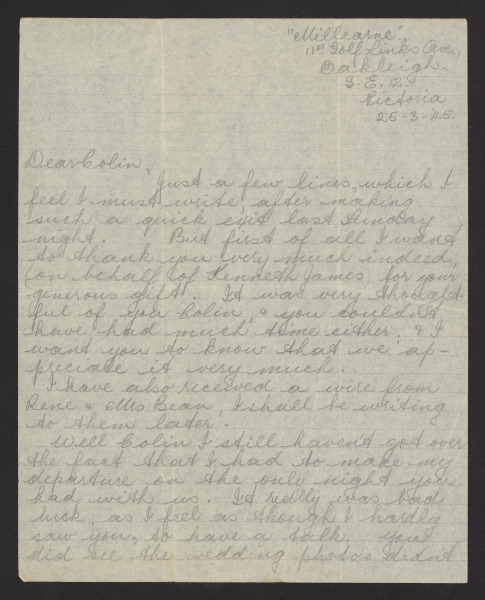 "Millearne".
11A Golf Links Ave.,
Oakleigh.
S. E. 12.
Victoria
25-3-45.
Dear Colin,
Just a few lines, which I
feel I must write, after making
such a quick exit last Sunday
night. But first of all I want
to thank you very much indeed,
(on behalf of Kenneth James) for your
generous gift. It was very thought-
ful of you Colin, & you couldn't
have had much time either, & I
want you to know that we ap-
preciate it very much.
I have also received a wire from
Rene & Mrs Bean, I shall be writing
to them later.
Well Colin I still haven't got over
the fact that I had to make my
departure on the only night you
had with us. It really was bad
luck, as I feel as though I hardly
saw you, to have a talk. You
did see the wedding photos didn't